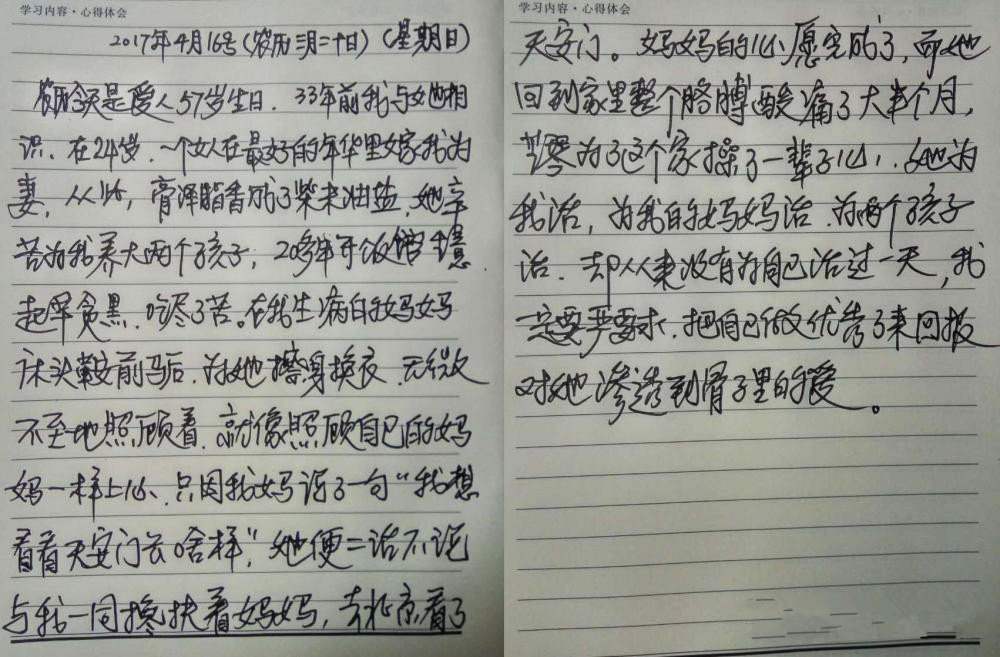 学习内容·心得体会
2017年4月16号(农历三月二十日)(星期日)
农历今天是爱人57岁生日.33年前我与她相
识.在24岁.一个女人在最好的年华里嫁我为
妻,从此,膏泽脂香成了柴米油盐.她辛
苦为我养大两个孩子,20多年开饭馆生意
起早贪黑.吃尽了苦。在我生病的妈妈
床头鞍前马后.为她擦身换衣.无微
不至地照顾着.就像照顾自己的妈
妈一样上心、只因我妈说了一句“我想
看看天安门长啥样”,她便二话不说
与我一同搀扶着妈妈,去北京看了
学习内容·心得体会
天安门。妈妈的心愿完成了,而她
回到家里整个胳膊酸痛了大半个月,
为了这个家操了一辈子心.她为
我活,为我的妈妈活.为两个孩子
活.却从来没有为自己活过一天,我
一定要严要求.把自己做优秀了来回报
对她渗透到骨子里的爱。